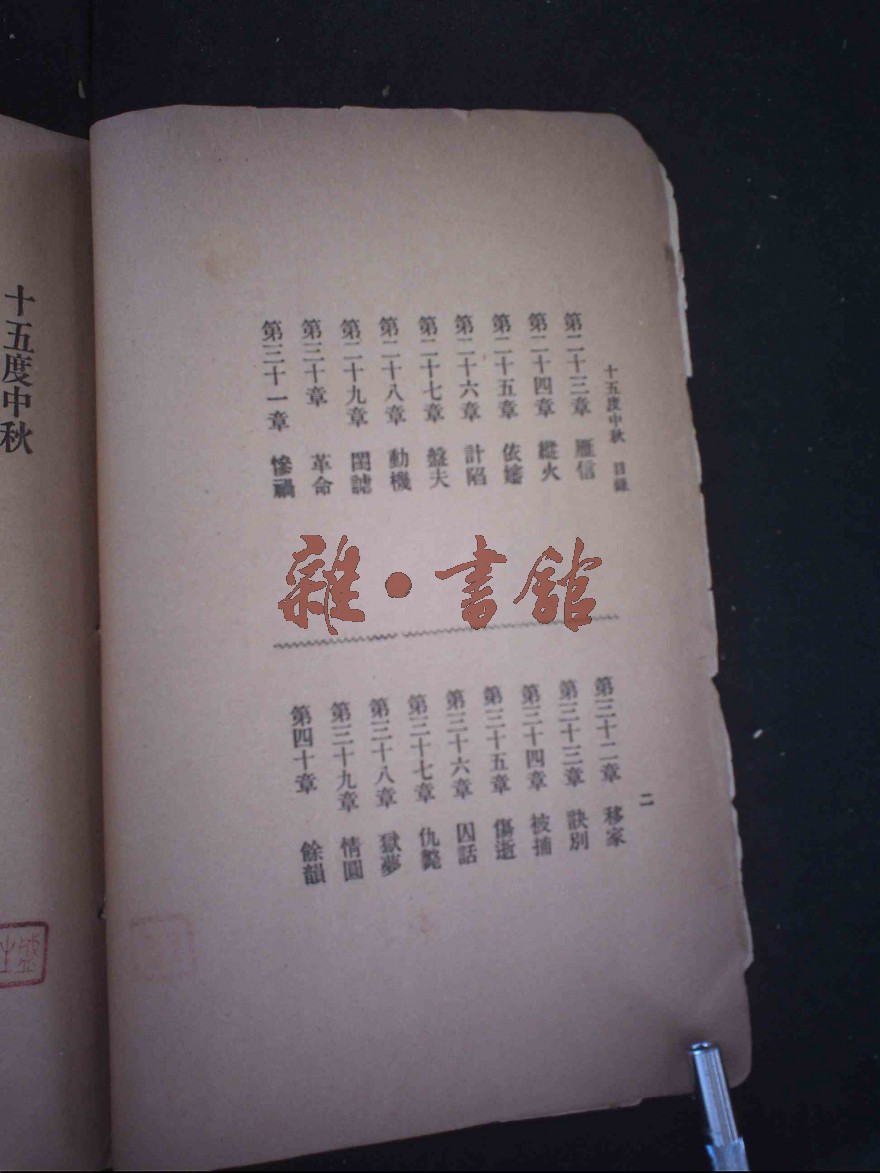 十五度中秋 目錄
第二十三章 雁信
第二十四章 縱火
第二十五章 依嬸
第二十六章 計陷
第二十七章 盤夫
第二十八章 動機
第二十九章 閨謔
第三十章 革命
第三十一章 慘禍
二
第三十二章 移家
第三十三章 訣別
第三十四章 被捕
第三十五章 傷逝
第三十六章 囚話
第三十七章 仇斃
第三十八章 獄夢
第三十九章 情圓
第四十章 餘韻
雜·書館
十五度中秋